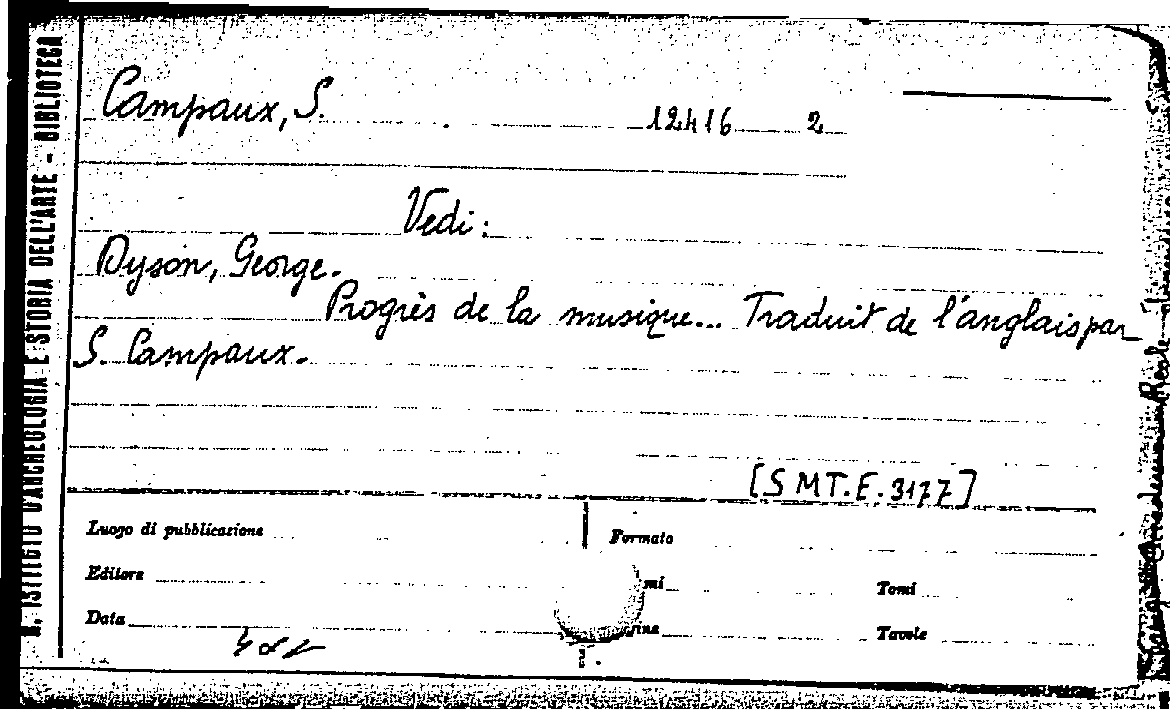 Campaux, S.
12416 2
Vedi:
Dyson, George.
Progrès de la musique... Traduit de l'anglais par
S. Campaux.
[SMT.E.3177]
Luogo di pubblicazione
Formato
Editore
Tomi
Data
Tavole
R. ISTITUTO D'ARCHEOLOGIA E STORIA DELL'ARTE - BIBLIOTECA